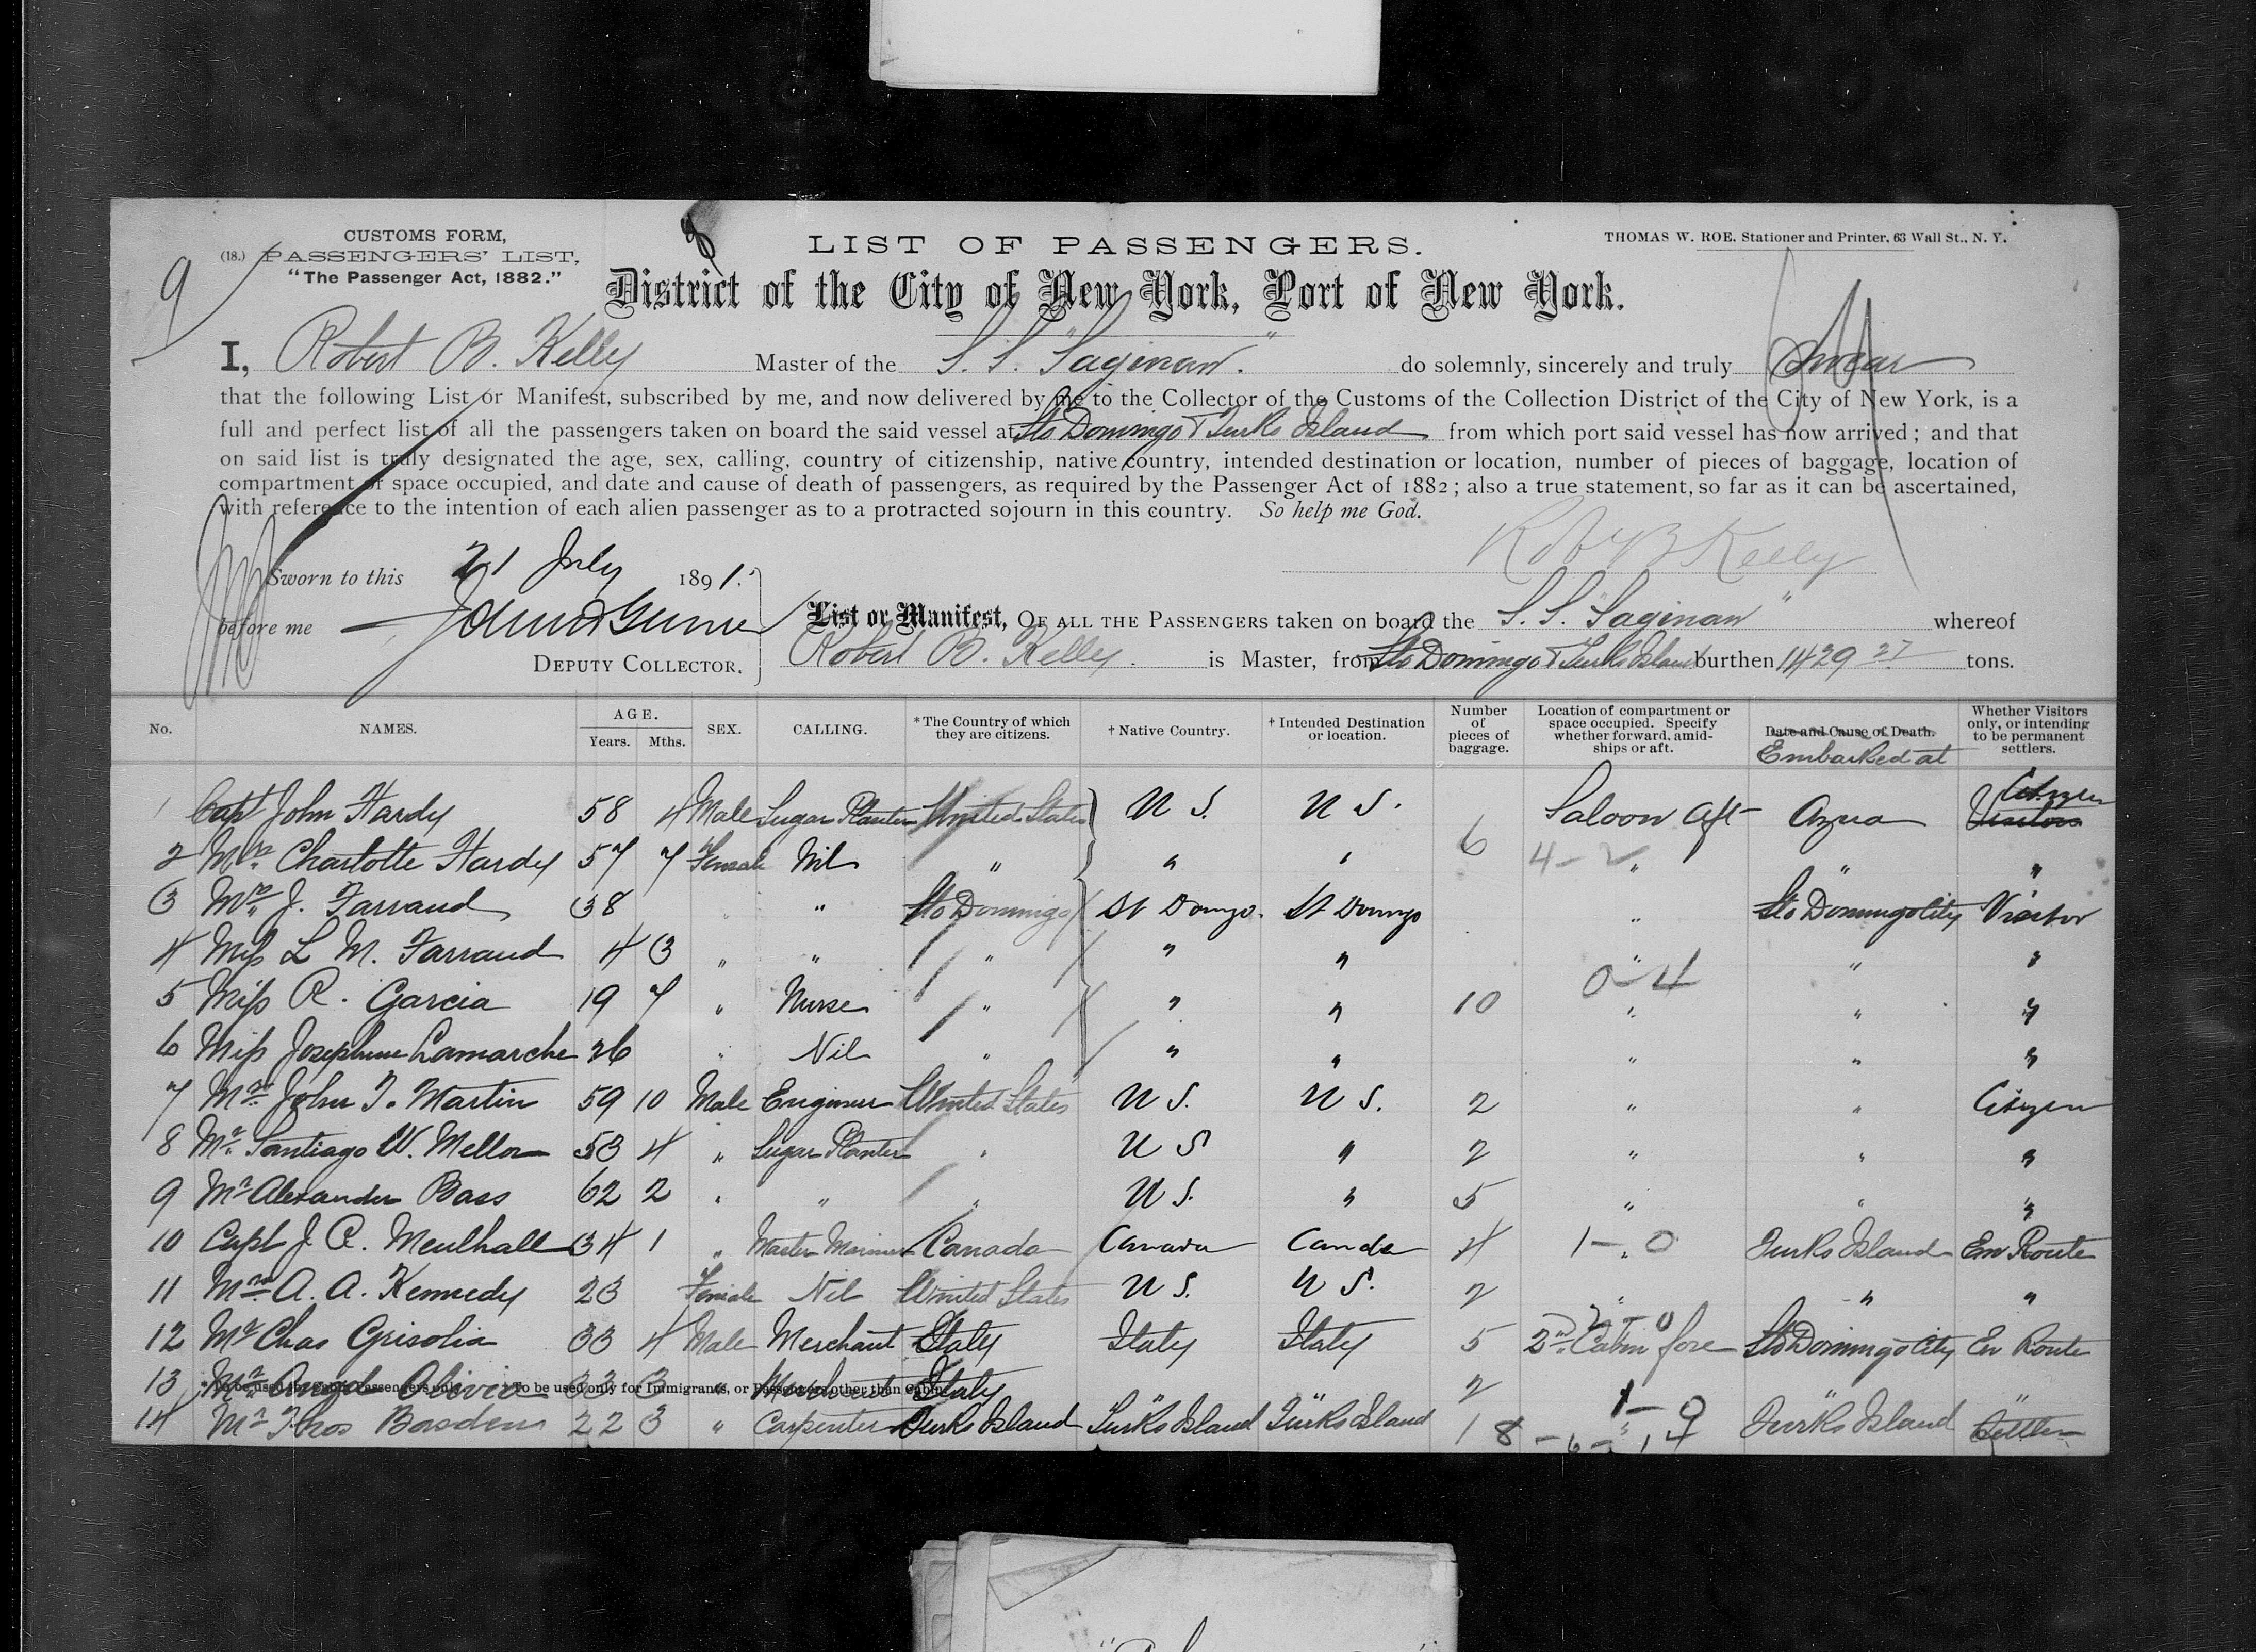 CUSTOMS FORM,
(18.) PASSENGERS' LIST,
"The Passenger Act, 1882."
9
LIST OF PASSENGERS.
THOMAS W. ROE. Stationer and Printer, 63 Wall St., N. Y.
District of the City of New York, Port of New York.
I, Robert B. Kelly Master of the S. S. "Saginaw." do solemnly, sincerely and truly Swear
that the following List or Manifest, subscribed by me, and now delivered by me to the Collector of the Customs of the Collection District of the City of New York, is a
full and perfect list of all the passengers taken on board the said vessel at Sto Domingo & Turks Island from which port said vessel has now arrived; and that
on said list is truly designated the age, sex, calling, country of citizenship, native country, intended destination or location, number of pieces of baggage, location of
compartment or space occupied, and date and cause of death of passengers, as required by the Passenger Act of 1882; also a true statement, so far as it can be ascertained,
with reference to the intention of each alien passenger as to a protracted sojourn in this country. So help me God.
Robt B Kelly
Sworn to this 21 July 1891.
before me
DEPUTY COLLECTOR.
List or Manifest, OF ALL THE PASSENGERS taken on board the S. S. "Saginaw" whereof
Robert B. Kelly. is Master, from Sto Domingo & Turks Island burthen 1429 27 tons.
No. NAMES. AGE. Years. Mths. SEX. CALLING. *The Country of which they are citizens. †Native Country. †Intended Destination or location. Number of pieces of baggage. Location of compartment or space occupied. Specify whether forward, amidships or aft. Date and Cause of Death. Embarked at Whether Visitors only, or intending to be permanent settlers.
1 Capt John Hardy 58 4 Male Sugar Planter United States U S. U S. Saloon Aft Azua Visitors Citizen
2 Mrs. Charlotte Hardy 57 7 Female Nil " " " 6 4 - " " "
3 Mrs. J. Farrand 38 " " Sto Domingo St Domgo. St Domgo " Sto Domingo City Visitor
4 Miss L M. Farrand 4 3 " " " " " " " "
5 Miss R. Garcia 19 7 " Nurse " " " 10 0-4 " " "
6 Miss Josephine Lamarche 26 " Nil " " " " " "
7 Mr. John T. Martin 59 10 Male Engineer United States U S. U S. 2 " " Citizen
8 Mr. Santiago W. Mellor 53 4 " Sugar Planter " U S " 2 " " "
9 Mr Alexander Bass 62 2 " " " U S. " 5 " " "
10 Capt J. R. Meulhall 34 1 " Master Mariner Canada Canada Canda 4 1 - 0 " Turks Island En Route
11 Mrs. A. A. Kennedy 23 Female Nil United States U S. U S. 2 " " "
12 Mr Chas Grisolia 33 4 Male Merchant Italy Italy Italy 5 2 - 0 2nd Cabin fore Sto Domingo City En Route
13 Mr. Angel Olivia 33 3 " Merchant Italy " " 2 " " "
*To be used for Cabin Passengers only. †To be used only for Immigrants, or Passengers other than Cabin.
14 Mr. Thos Basden 22 3 " Carpenter Turks Island Turks Island Turks Island 1 1 - 0 " Turks Island Settler
8 - 6 - 14